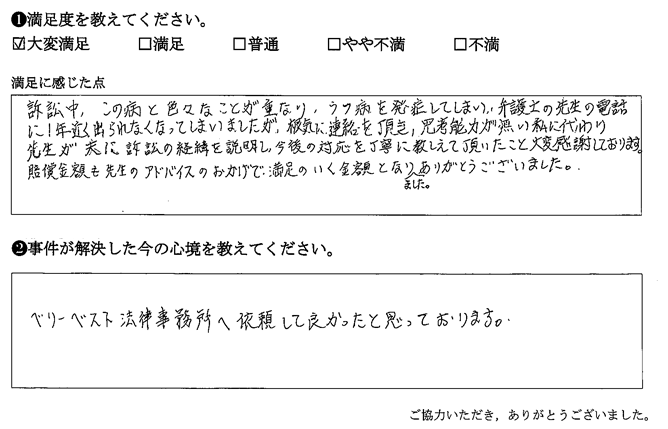 ❶満足度を教えてください。
☑大変満足 □満足 □普通 □やや不満 □不満
満足に感じた点
訴訟中、この病と色々なことが重なり、うつ病を発症してしまい、弁護士の先生の電話
に1年近く出られなくなってしまいましたが、根気に連絡を頂き、思考能力が無い私に代わり
先生が夫に訴訟の経緯を説明し、今後の対応を丁寧に教しえて頂いたこと大変感謝しております。
賠償金額も先生のアドバイスのおかげで満足のいく金額となり、ありがとうございました。
ました。
❷事件が解決した今の心境を教えてください。
ベリーベスト法律事務所へ依頼して良かったと思っております。
ご協力いただき，ありがとうございました。